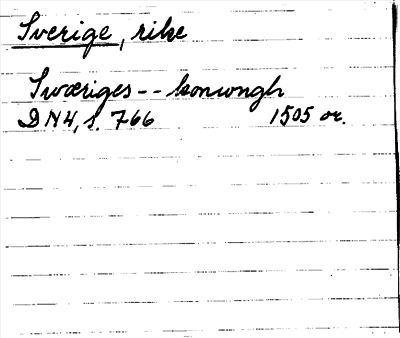 Sverige, rike
Swæriges -- konwngh
DN4, s. 766 1505 or.